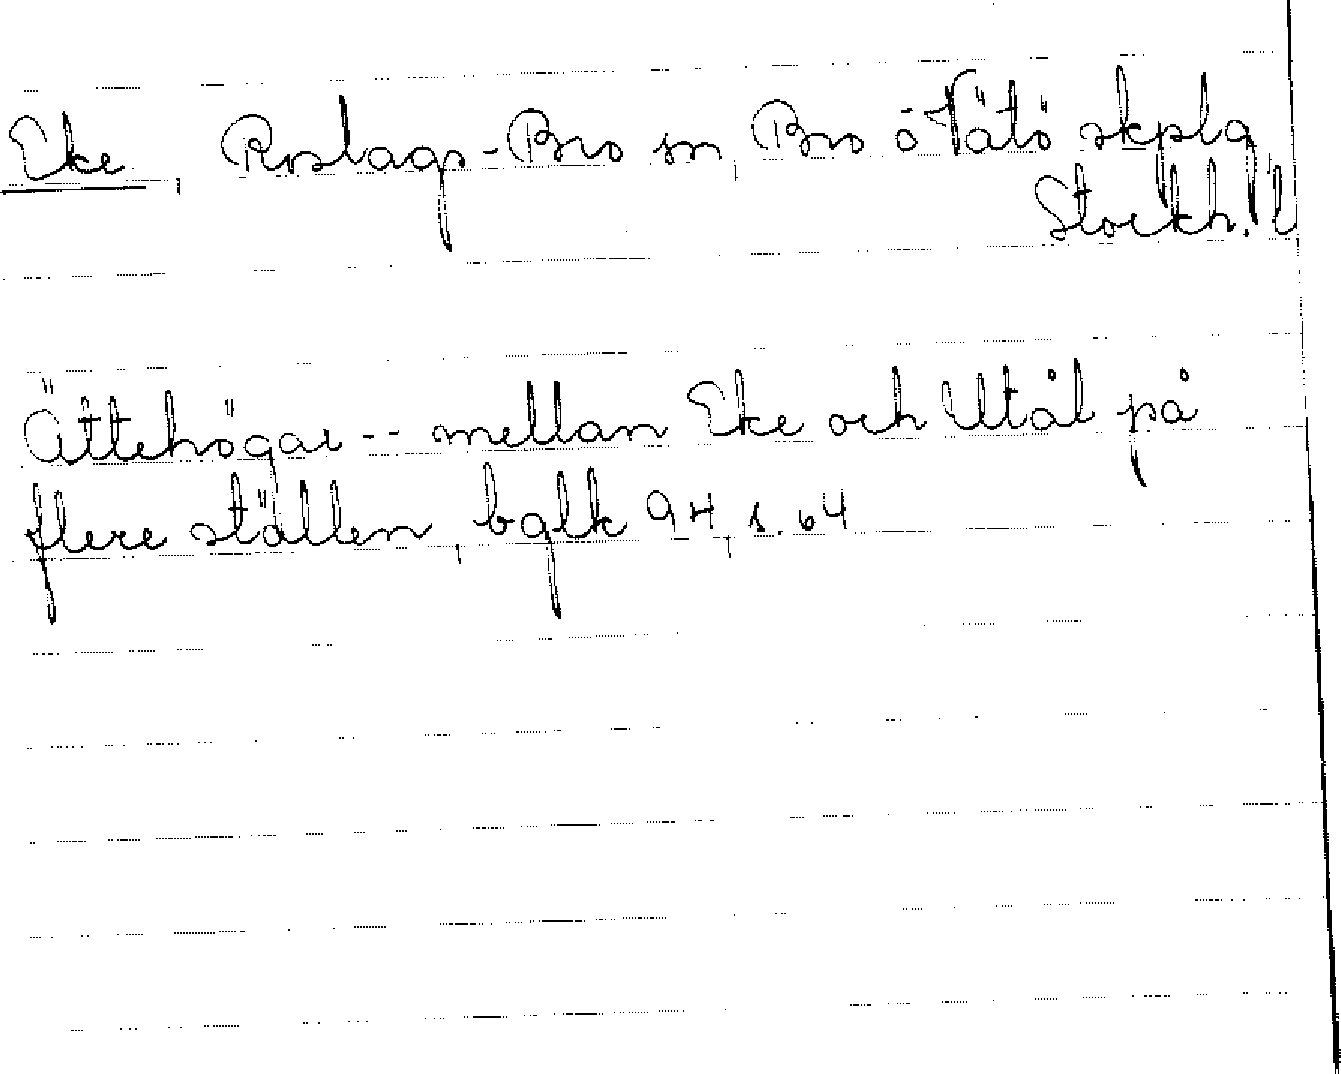 Eke, Roslags-Bro sn, Bro o Vätö skplg,
Stockh. l
Ättehögar -- mellan Eke och Utål på
flere ställen, bglk 94, s. 64